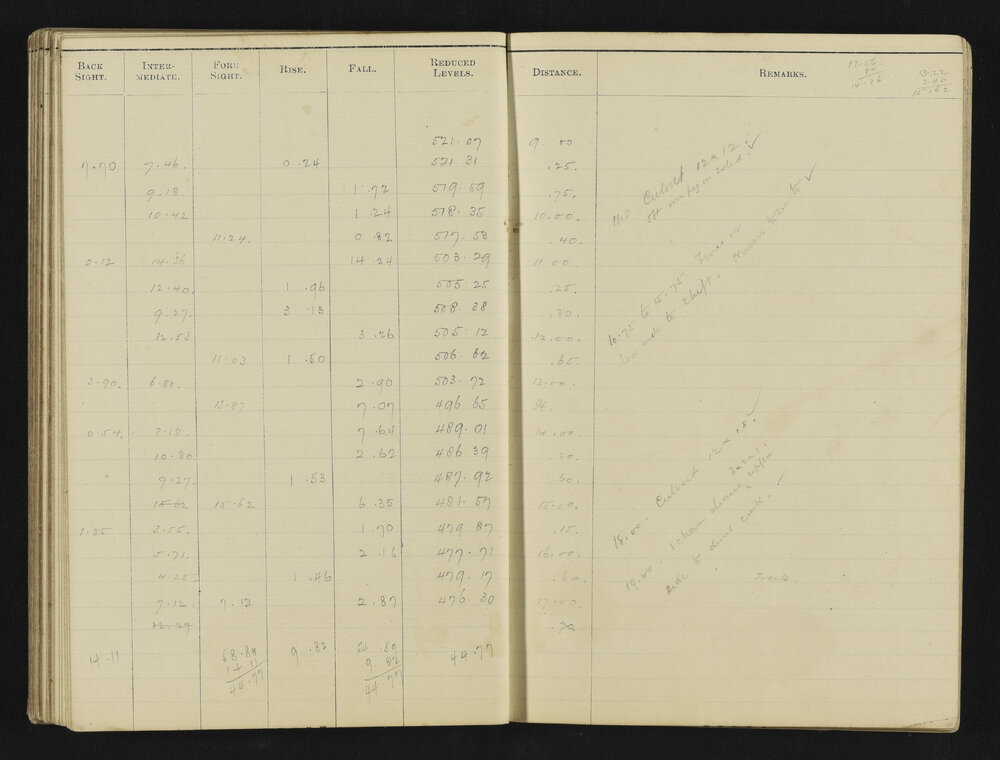 BACK SIGHT. INTER-MEDIATE. FORE SIGHT. RISE. FALL. REDUCED LEVELS. DISTANCE. REMARKS.
12.16
14.76
13.22
2.40
15.62
521.07 9 00
7.70 7.46. 0.24 521 31 .25.
9.18 1.72 519.59 .75.
10.42 1.24 518.35 10.00.
11.24. 0.82 517.53 .40.
0.12 14.36 14.24 503.29 11.00.
12.40. 1.96 505 25 .25.
9.27. 3.13 508.38 .80.
12.53 3.26 505.12 12.00.
11.03 1.50 506.62 .65.
3.90. 6.80. 2.90 503.72 13.00.
13.87 7.07 496 65
0.54. 8.18. 7.64 489.01 14.00.
10.80 2.62 486.39 .20.
9.27. 1.53 487.92 .60.
15.62 15.62 6.35 481.57 15.00.
1.85 3.55. 1.70 479.87 .15.
5.71. 2.16 477.71 16.00.
4.25. 1.46 479.17 .60.
7.12 7.12 2.87 476.30 17.00.
12.27 .70
14.11 58.88 9.82 54.59 44.77
14.11 9.82
44.77 44.77
11.0 Culvert 12 x 12.
12.75 to 15.75 Fence on
side to shaft.
18.00. Culvert 12 x 18.
19.00. 1 chain drain 3x2x1 upper
side to